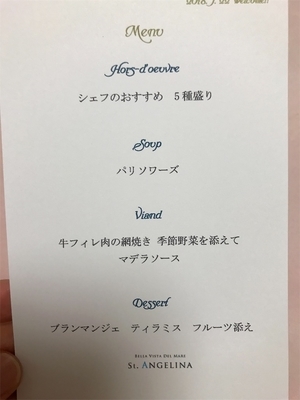 Menu
Hors-d'oeuvre
シェフのおすすめ 5種盛り
Soup
パリソワーズ
Viand
牛フィレ肉の網焼き 季節野菜を添えて
マデラソース
Dessert
ブランマンジェ ティラミス フルーツ添え
BELLA VISTA DEL MARE
ST. ANGELINA